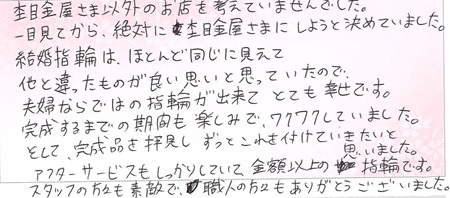 杢目金屋さま以外のお店を考えていませんでした。
一目見てから、絶対に杢目金屋さまにしようと決めていました。
結婚指輪は、ほとんど同じに見えて
他と違ったものが良い思いと思っていたので、
夫婦ならではの指輪が出来てとても幸せです。
完成するまでの期間も楽しみで、ワクワクしていました。
そして、完成品を拝見しずっとこれを付けていきたいと
思いました。
アフターサービスもしっかりしていて金額以上の指輪です。
スタッフの方々も素敵で、職人の方々もありがとうございました。